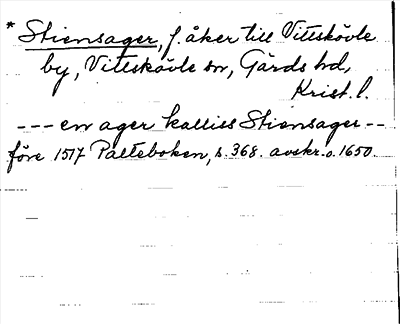 * Stiensager, f. åker till Vittskövle
by, Vittskövle sn, Gärds hd,
Krist. l.
--- en ager kalliss Stiensager --
före 1517 Palteboken, s. 368. avskr. o. 1650